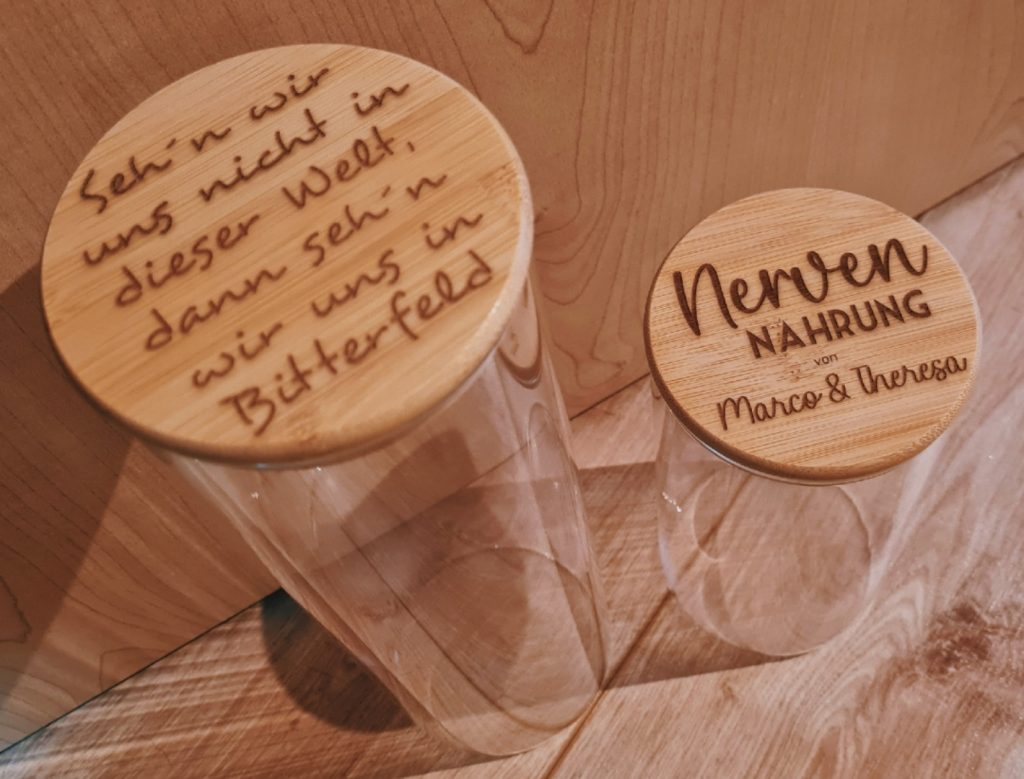 Seh´n wir
uns nicht in
dieser Welt,
dann seh´n
wir uns in
Bitterfeld
Nerven
NAHRUNG
von
Marco & Theresa